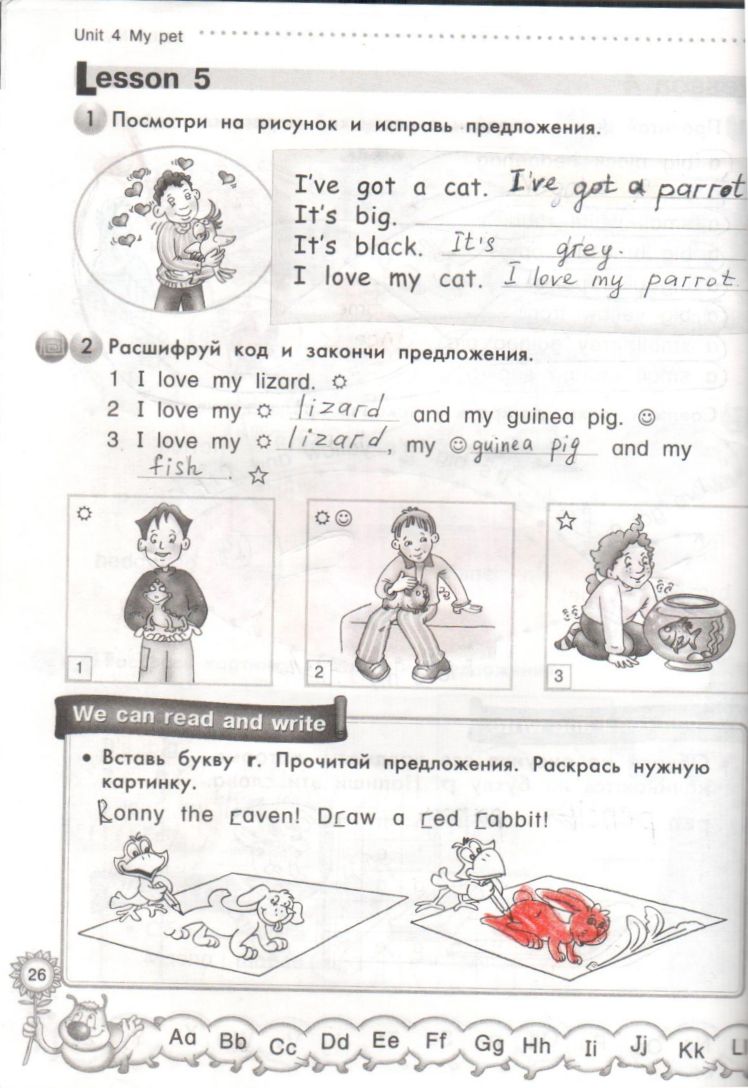 Unit 4 My pet
Lesson 5
1 Посмотри на рисунок и исправь предложения.
I've got a cat. I've got a parrot
It's big.
It's black. It's grey.
I love my cat. I love my parrot.
2 Расшифруй код и закончи предложения.
1 I love my lizard.
2 I love my lizard and my guinea pig.
3 I love my lizard, my guinea pig and my
fish.
1
2
3
We can read and write
• Вставь букву r. Прочитай предложения. Раскрась нужную
картинку.
Ronny the raven! Draw a red rabbit!
26
Aa Bb Cc Dd Ee Ff Gg Hh Ii Jj Kk